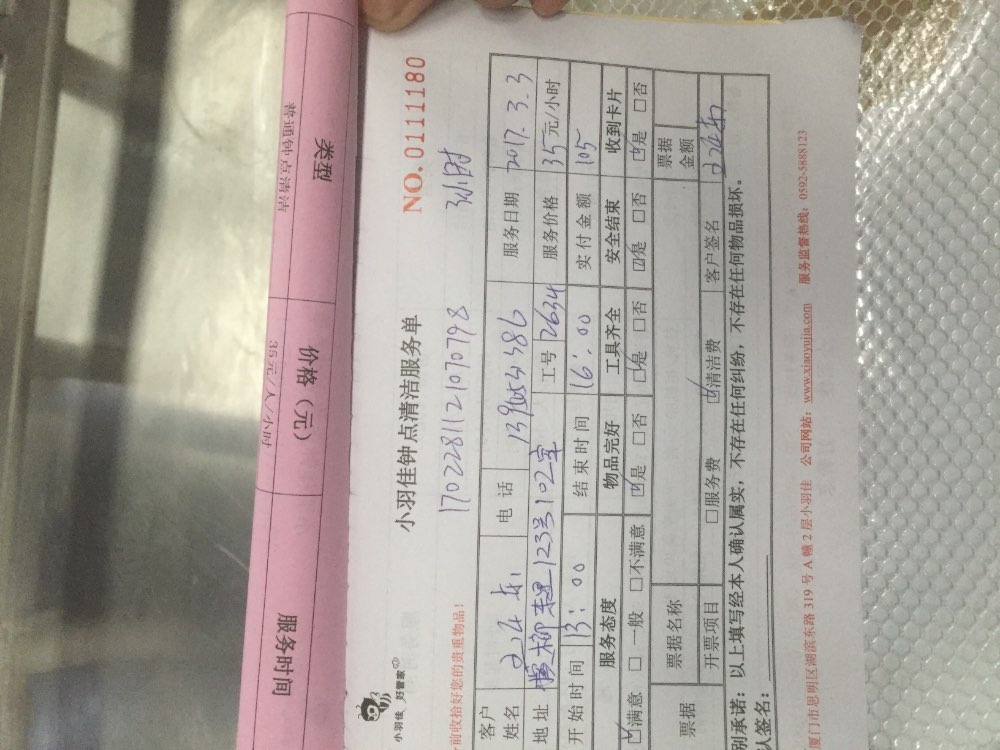 类型
价格（元）
服务时间
普通钟点清洁
35元/人/小时
小羽佳 好管家
小羽佳钟点清洁服务单
NO.0111180
1702281121070798
3小时
前收拾好您的贵重物品！
客户姓名
电话
服务日期 2017.3.3
地址
123号102室
工号 2634
服务价格 35元/小时
开始时间 13:00
结束时间 16:00
实付金额 105
服务态度 物品完好 工具齐全 安全结束 收到卡片
☑满意 □一般 □不满意 ☑是 □否 ☑是 □否 ☑是 □否 ☑是 □否
票据 票据名称 票据金额
开票项目 □服务费 ☑清洁费 客户签名
别承诺：以上填写经本人确认属实，不存在任何纠纷，不存在任何物品损坏。
认签名：
厦门市思明区湖滨东路 319 号 A 幢 2 层小羽佳 公司网站：www.xiaoyujia.com 服务监督热线：0592-5888123